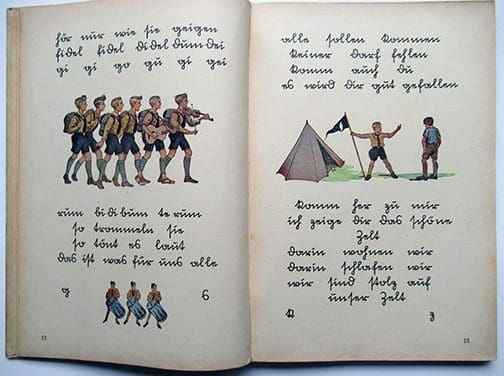 hör nur wie sie geigen
fidel fidel didel dum dei
gi gi go gu gi gei
rum bidibum te rum
so trommeln sie
so tönt es laut
das ist was für uns alle
g
12
alle sollen kommen
keiner darf fehlen
komm auch du
es wird dir gut gefallen
komm her zu mir
ich zeige dir das schöne
zelt
darin wohnen wir
darin schlafen wir
wir sind stolz auf
unser zelt
k z
13